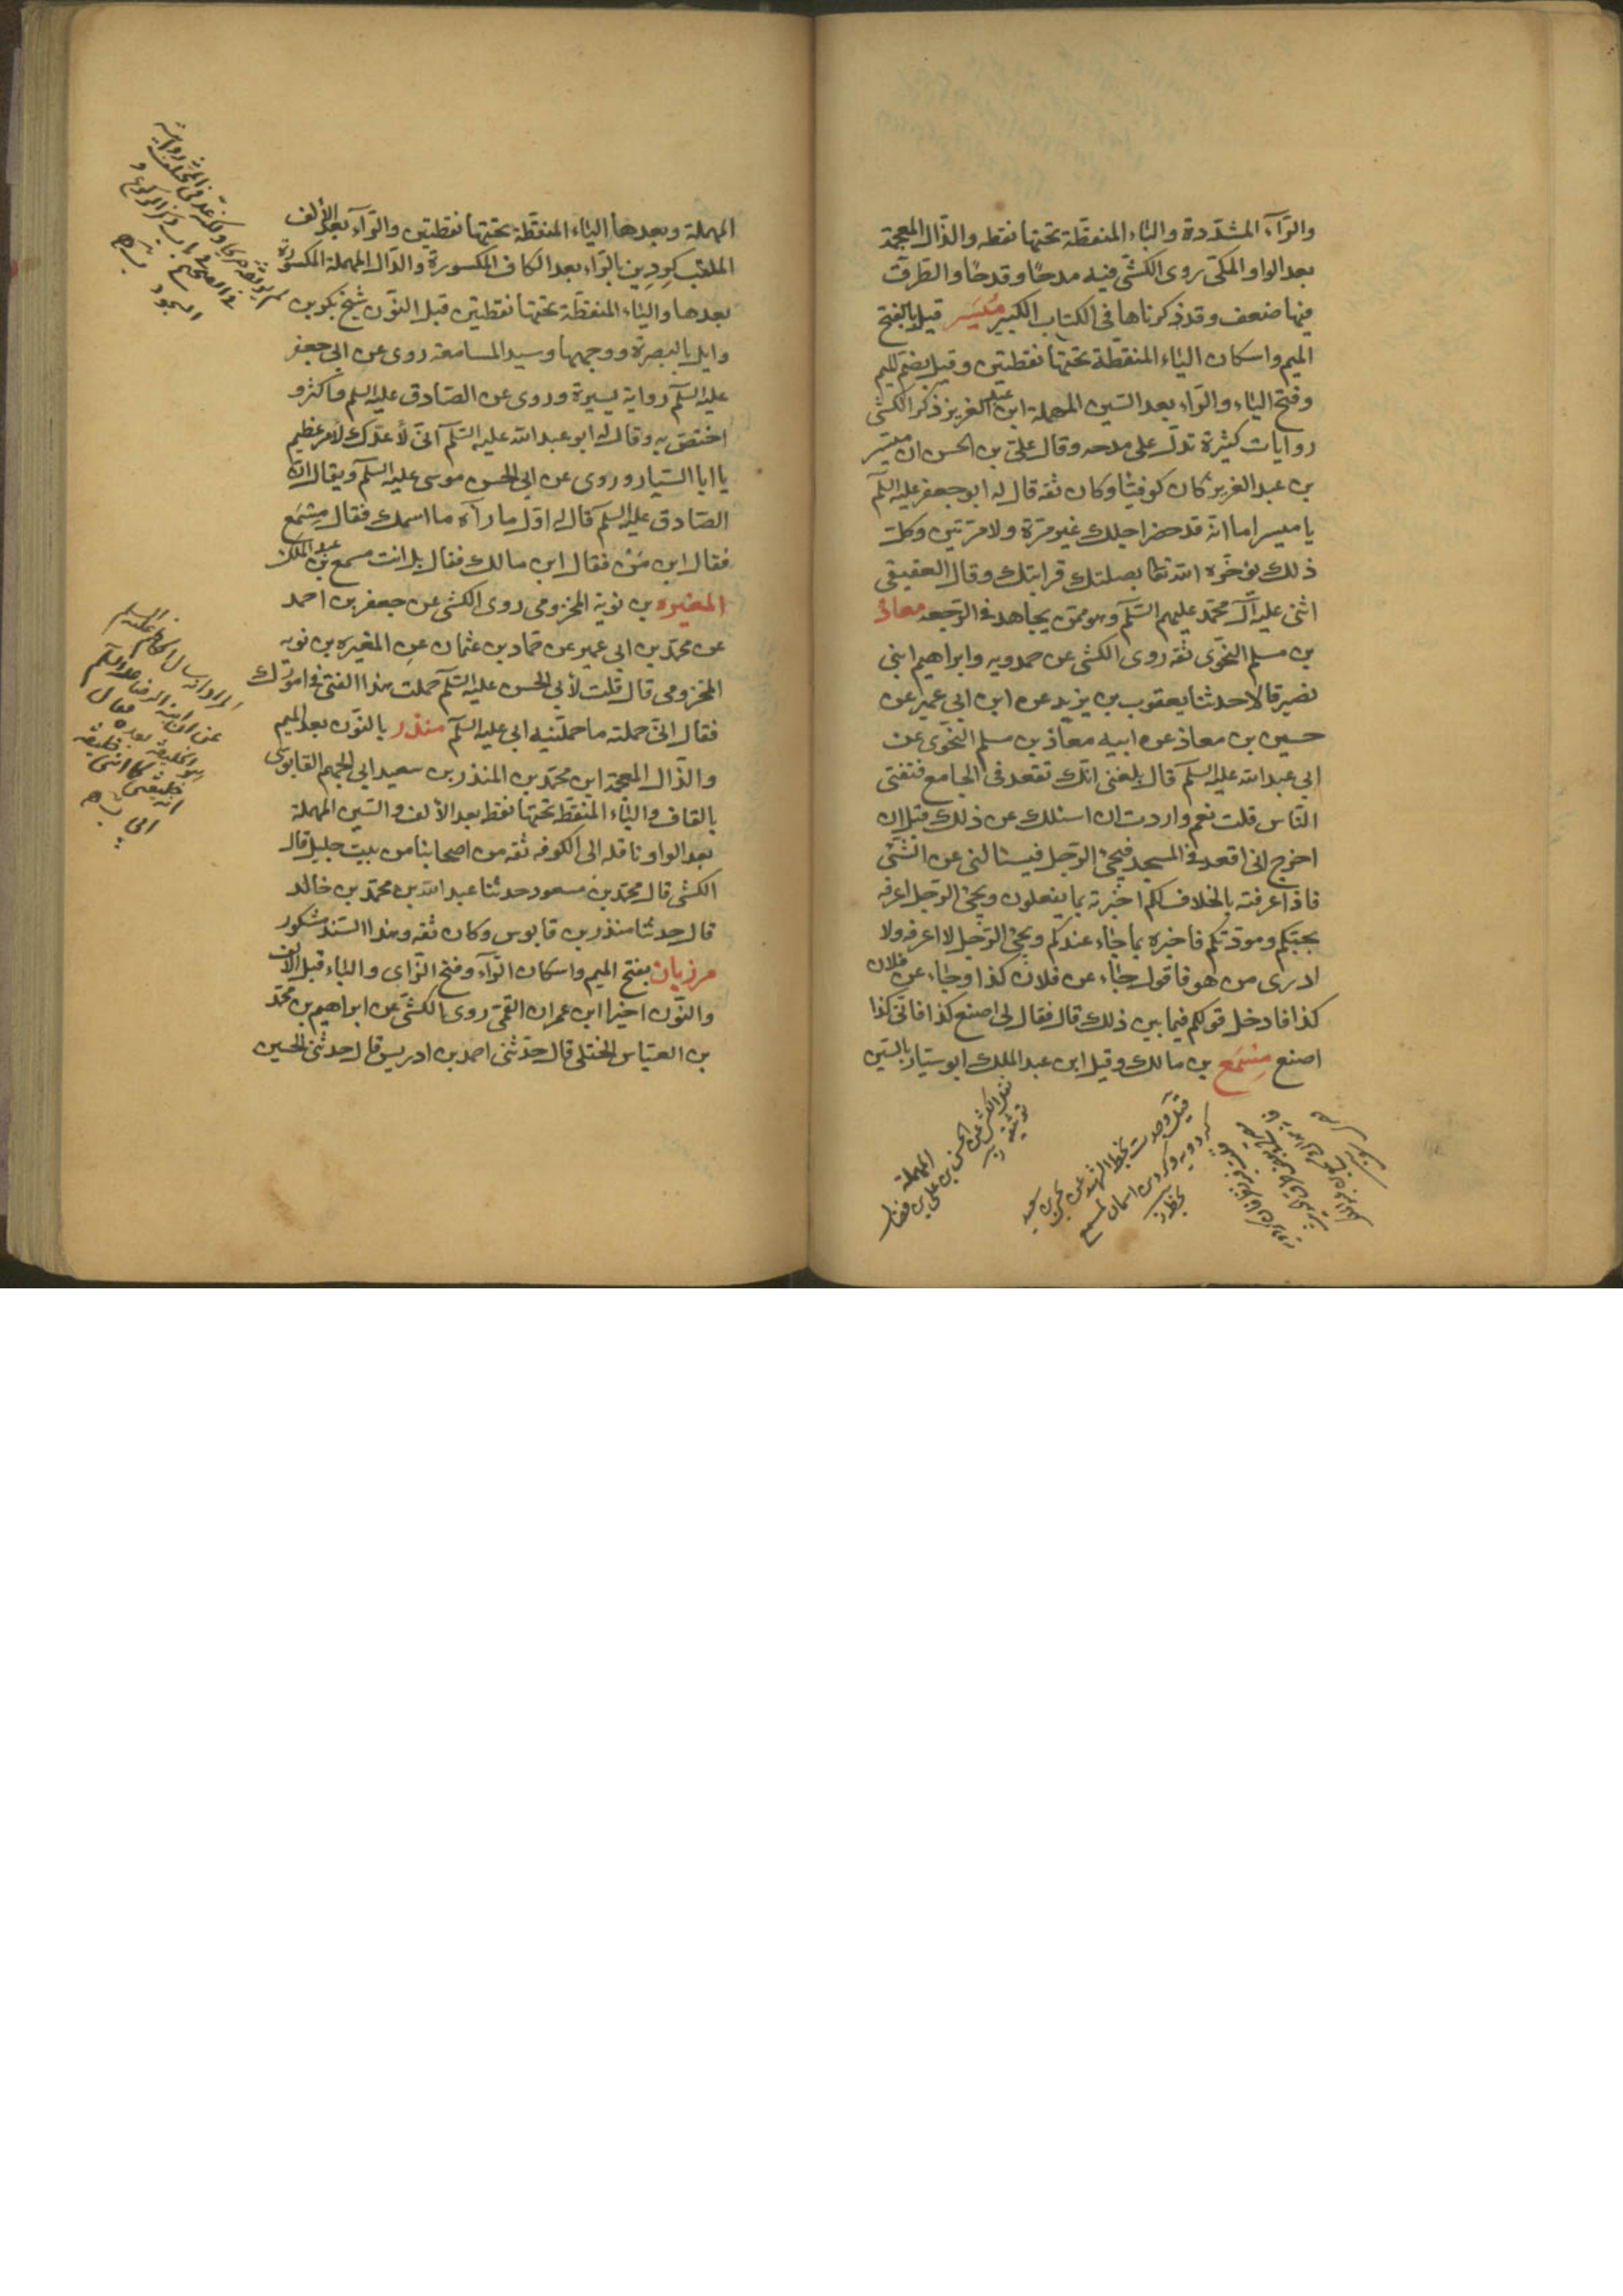 والرّآء المشدّدة والباء المنقطة تحتها نقطه والذّال المعجمة
بعد الواو المكّى روى الكشّى فيه مدحًا وقدحًا والطّرق
فيها ضعف وقد ذكرناها فى الكتاب الكبير مُيَسَر قيل بالفتح
الميم واسكان الياء المنقطة تحتها نقطتين وقيل بضم الميم
وفتح الياء والرّاء بعد السّين المهملة ابن عبد العزيز ذكر الكشى
روايات كثيرة تدلّ على مدحه وقال علىّ بن الحسن ان ميسّر
بن عبد العزيز كان كوفيّا وكان ثقه قال له ابو جعفر عليه السلّم
يا ميسر اما انّه قد حضر اجلك غير مرّة ولا مرّتين وكلّ
ذلك يؤخّره الله تعا بصلتك قرابتك وقال العقيقى
اثنى عليه آل محمّد عليهم السّلم وهو ممّن يجاهد فى الرّجعه معاذ
بن مسلم النحوّى ثقه روى الكشى عن حمدويه وابراهيم ابنى
نضير قالا حدثنا يعقوب بن يزيد عن ابن ابى عمير عن
حسين بن معاذ عن ابيه معاذ بن مسلم النّحوّى عن
ابى عبد الله عليه السلّم قال بلغنى انّك تقعد فى الجامع فتفتى
النّاس قلت نعم واردت ان اسئلك عن ذلك قبل ان
اخرج انى اقعد فى المسجد فيجئ الرّجل فيسئالنى عن الشّئ
فاذا عرفته بالخلاف لكم اخبرته بما يفعلون ويجئ الرّجل اعرفه
بحبّكم ومودّتكم فاخبره بما جاء عندكم ويجئ الرّجل لا اعرفه ولا
ادرى من هو فاقول جاء عن فلان كذا وجاء عن فلان
كذا فادخل قولكم فيما بين ذلك قال فقال لى اصنع كذا فانّى كذا
اصنع مِسْمَع بن مالك وقيل ابن عبد الملك ابو سيّار بالسّين
المهملة
نقل الكشى عن الحسن بن على بن فضال
توثيقه
المهملة وبعدها الياء المنقّطة تحتها نقطتين والرّآء بعد الألف
الملقّب كِردِين بالرّاء بعد الكاف المكسورة والدّال المهملة المكسورة
بعدها والياء المنقّطة تحتها نقطتين قبل النّون شيخ بكر بن
وايل بالبصرة ووجهها وسيد المسامعة روى عن ابى جعفر
عليه السّلم رواية يسيرة وروى عن الصّادق عليه السلم فاكثر و
اختصّ به وقال له ابو عبد الله عليه السّلم انّى لأعدّك لامر عظيم
يا ابا السّيار وروى عن ابى الحسن موسى عليه السلّم ويقال انّ
الصّادق عليه السلم قال له اوّل ما رآه ما اسمك فقال مِسْمَع
فقال ابن مَن فقال ابن مالك فقال بل انت مسمع بن عبد الملك
المغيره بن توبة المخزومى روى الكشى عن جعفر بن احمد
عن محمّد بن ابى عمير عن حماد بن عثمان عن المغيره بن توبه
المخزومى قال قلت لأبى الحسن عليه السّلم حملت هذا الفتى فى امورك
فقال انّى حملته ما حملّنيه ابى عليه السلّم منذر بالنّون بعد الميم
والذّال المعجمة ابن محمّد بن المنذر بن سعيد ابى الجهم القابوسى
بالقاف والباء المنقطه تحتها نقطه بعد الألف والسّين المهملة
بعد الواو ناقله الى الكوفه ثقه من اصحابنا من بيت جليل قال
الكشى قال محمّد بن مسعود حدثنا عبد الله بن محمّد بن خالد
قال حدثنا منذر بن قابوس وكان ثقه وهذا السّند مشكور
مرزبان بفتح الميم واسكان الرّآء وفتح الزّاى والباء قبل الالف
والنّون اخيرا ابن عمران القمّى روى الكشّى عن ابراهيم بن محمّد
بن العبّاس الختلى قال حدّثنى احمد بن ادريس قال حدثنى الحسين